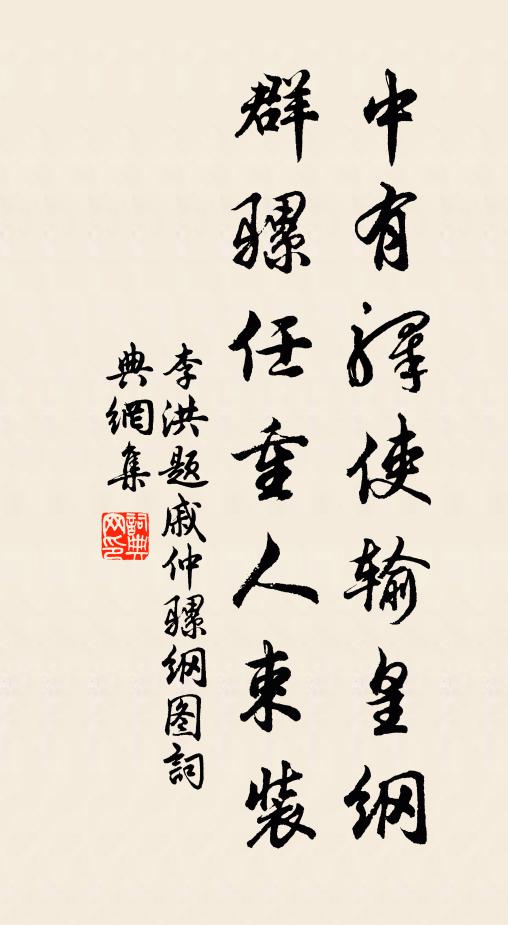 中有驛使输皇纲
群骡任重人束装
李洪题戚仲骡纲图詞
典網集
詞典
网印